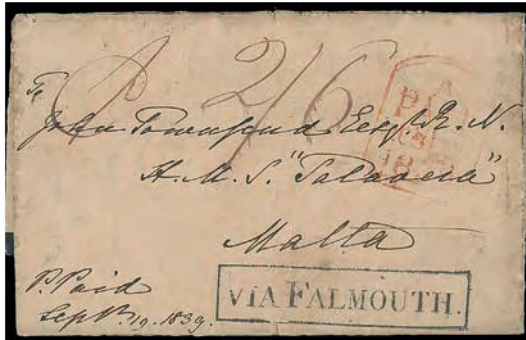 P 2/6
To
John Townsend Esqr. R. N.
H. M. S. "Talavera"
Malta
P. Paid
Septr. 19. 1839.
VIA FALMOUTH.